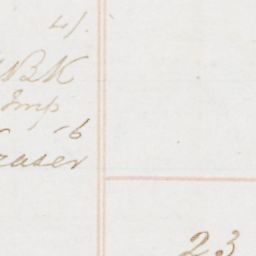 4/.
BK
Imp
6
raser
23